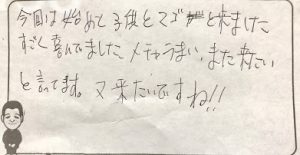 今回は始めて子供とマゴと来ました
すごく喜んでました。メチャうまい、また来たい
と言ってます。又来たいですね!!